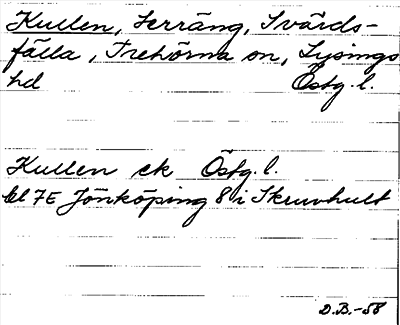 Kullen, Terräng, Svärds-
fälla, Trehörna sn, Lysings
hd Östg. l.
Kullen ek Östg. l.
bl 7E Jönköping 8 i Skruvhult
D.B.-58